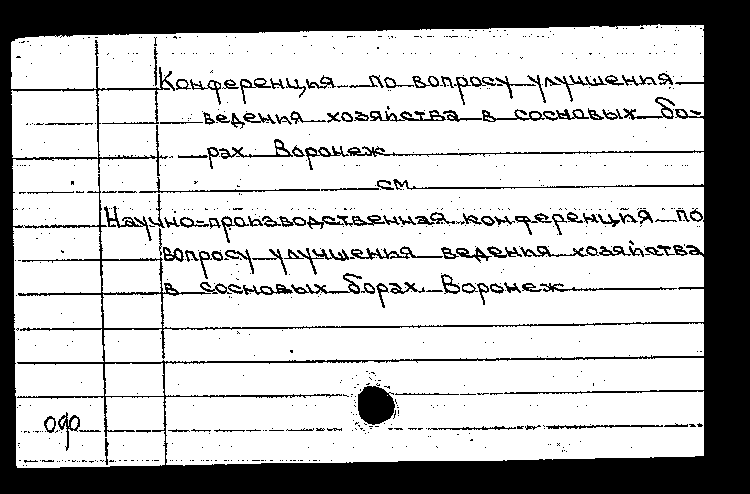 Конференция по вопросу улучшения
ведения хозяйства в сосновых бо-
рах. Воронеж.
см.
Научно-производственная конференция по
вопросу улучшения ведения хозяйства
в сосновых борах. Воронеж.